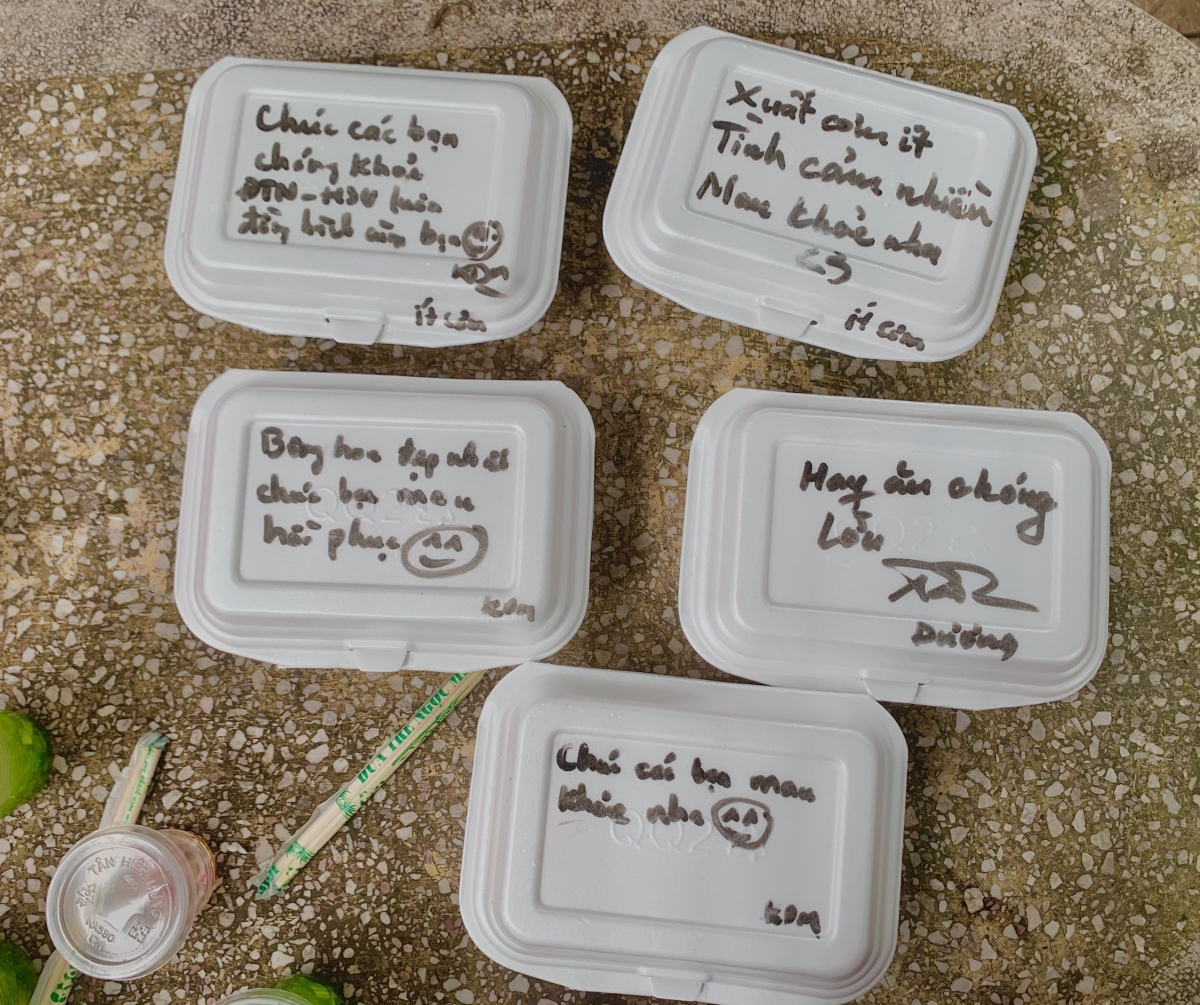 Chúc các bạn
chóng khoẻ
ĐTN - HSV luôn
đồng hành cùng bạn
KDM
ít cơm
Xuất cơm ít
Tình cảm nhiều
Mau khoẻ nha
<3
ít cơm
Bông hoa đẹp nhất
chúc bạn mau
hồi phục
KDM
Hay ăn chóng
Lớn
Dương
Chúc các bạn mau
khoẻ nha
KDM
ĐŨA TRE NGỌC
TÂN HIỆP